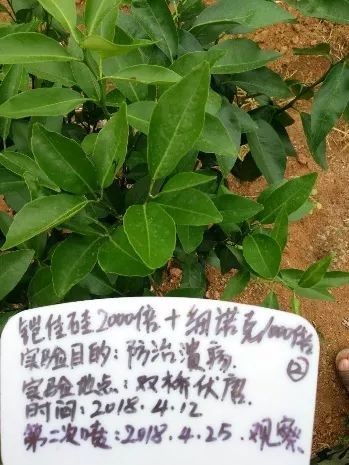 铠佳硅2000倍+细诺克1000倍
②
实验目的:防治溃疡.
实验地点:双桥伏唐.
时间:2018.4.12
第二次喷:2018.4.25.观察.